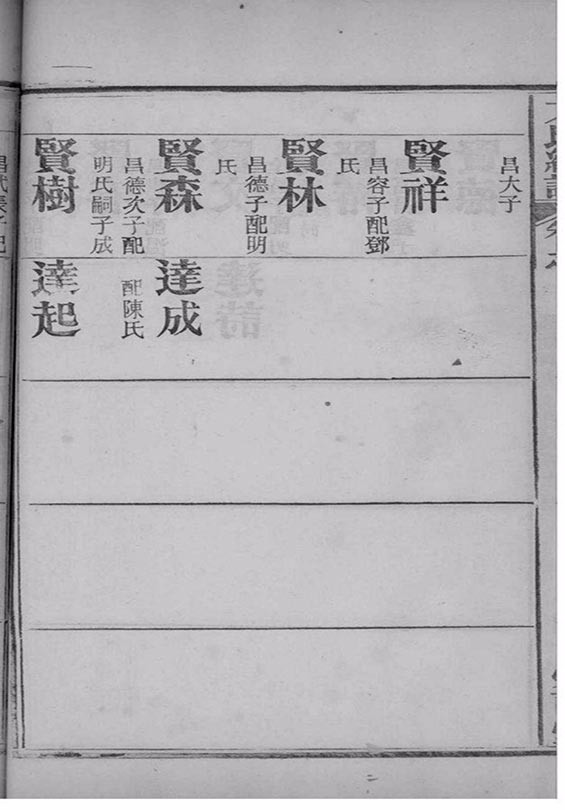 昌大子
賢祥
昌容子配鄧
氏
賢林
昌德子配明
氏
賢森
昌德次子配
明氏嗣子成
賢樹
達成
配陳氏
達起